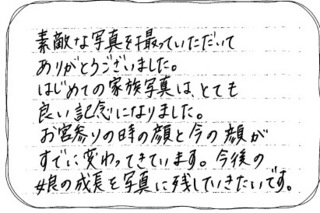 素敵な写真を撮っていただいて
ありがとうございました。
はじめての家族写真は、とても
良い記念になりました。
お宮参りの時の顔と今の顔が
すでに変わってきています。今後の
娘の成長を写真に残していきたいです。